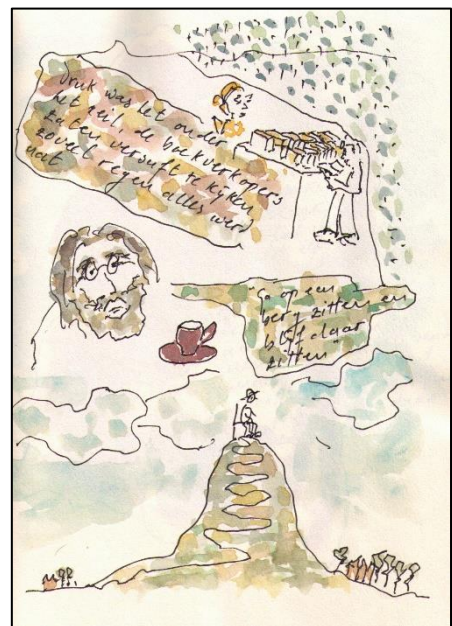 Druk was het onder
het zeil, de boekverkopers
zaten versuft te kijken
zoveel regen alles werd
nat
Ga op een
berg zitten en
blijf daar
zitten